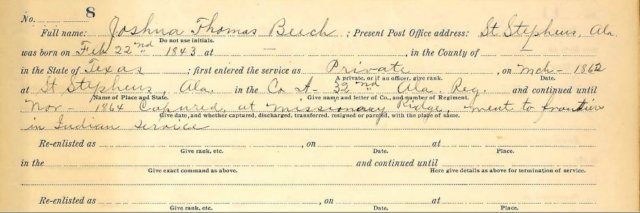 No. 8
Full name: Joshua Thomas Beech ; Present Post Office address: St. Stephens, Ala.
Do not use initials.
was born on Feb 22nd 1843 at — in the County of —
in the State of Texas ; first entered the service as Private , on Mch - 1862
A private, or if an officer, give rank. Date.
at St Stephens, Ala. in the Co A - 32nd Ala. Reg. and continued until
Name of Place and State. Give name and letter of Co., and number of Regiment.
Nov - 1864 Captured, at Missionary Ridge, went to frontier
Give date, and whether captured, discharged, transferred, resigned or paroled, with the place of same.
in Indian service
Re-enlisted as , on , at
Give rank, etc. Date. Place.
in the and continued until
Give exact command as above. Here give details as above for termination of service.
Re-enlisted as , on , at
Give rank, etc. Date. Place.